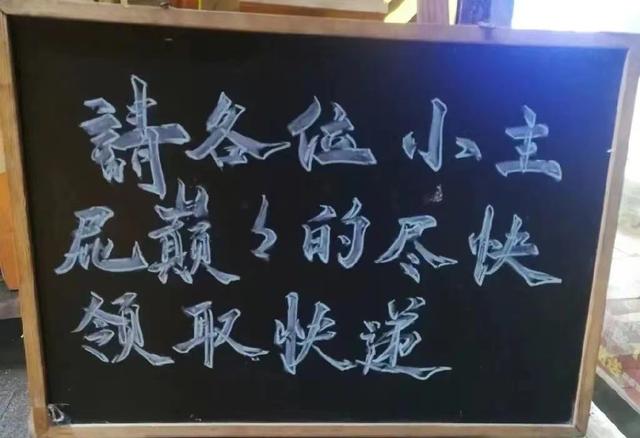 請各位小主
屁巅々的尽快
领取快递